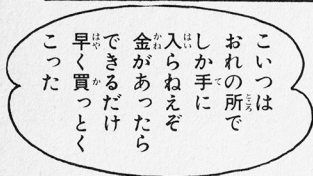 こいつは
おれの所で
しか手に
入らねえぞ
金があったら
できるだけ
早く買っとく
こった